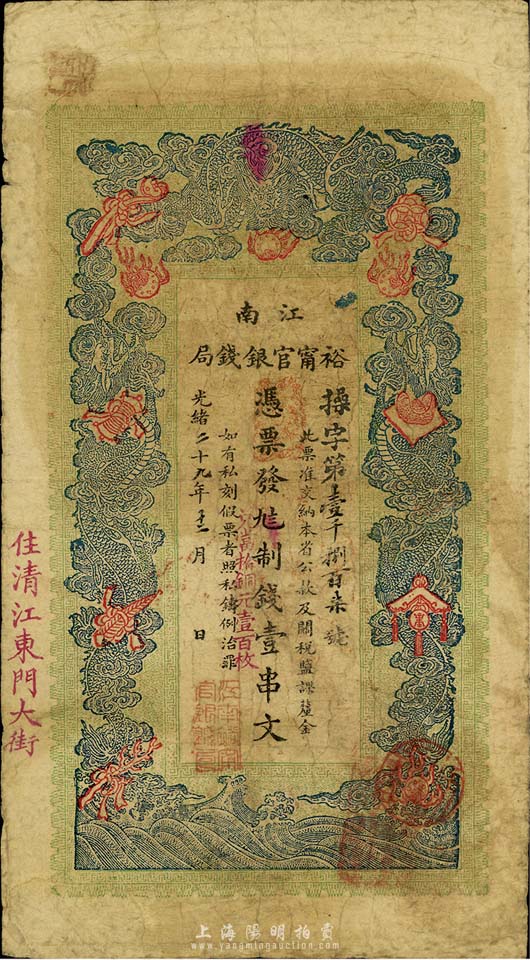 江南
裕甯官銀錢局
操字第壹千捌百柒號
此票准交納本省公款及關稅鹽課釐金
憑票發九制錢壹串文
當拾銅元壹百枚
如有私刻假票者照私鑄例治罪
光緒二十九年十二月 日
江南裕甯官銀錢局
住清江東門大街
上海陽明拍賣
www.yangmingauction.com